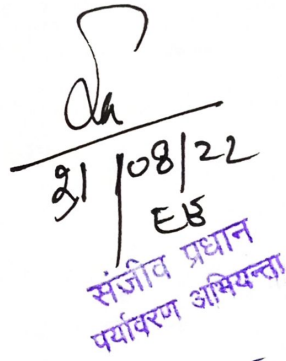 31/08/22
EE
संजीव प्रधान
पर्यावरण अभियन्ता